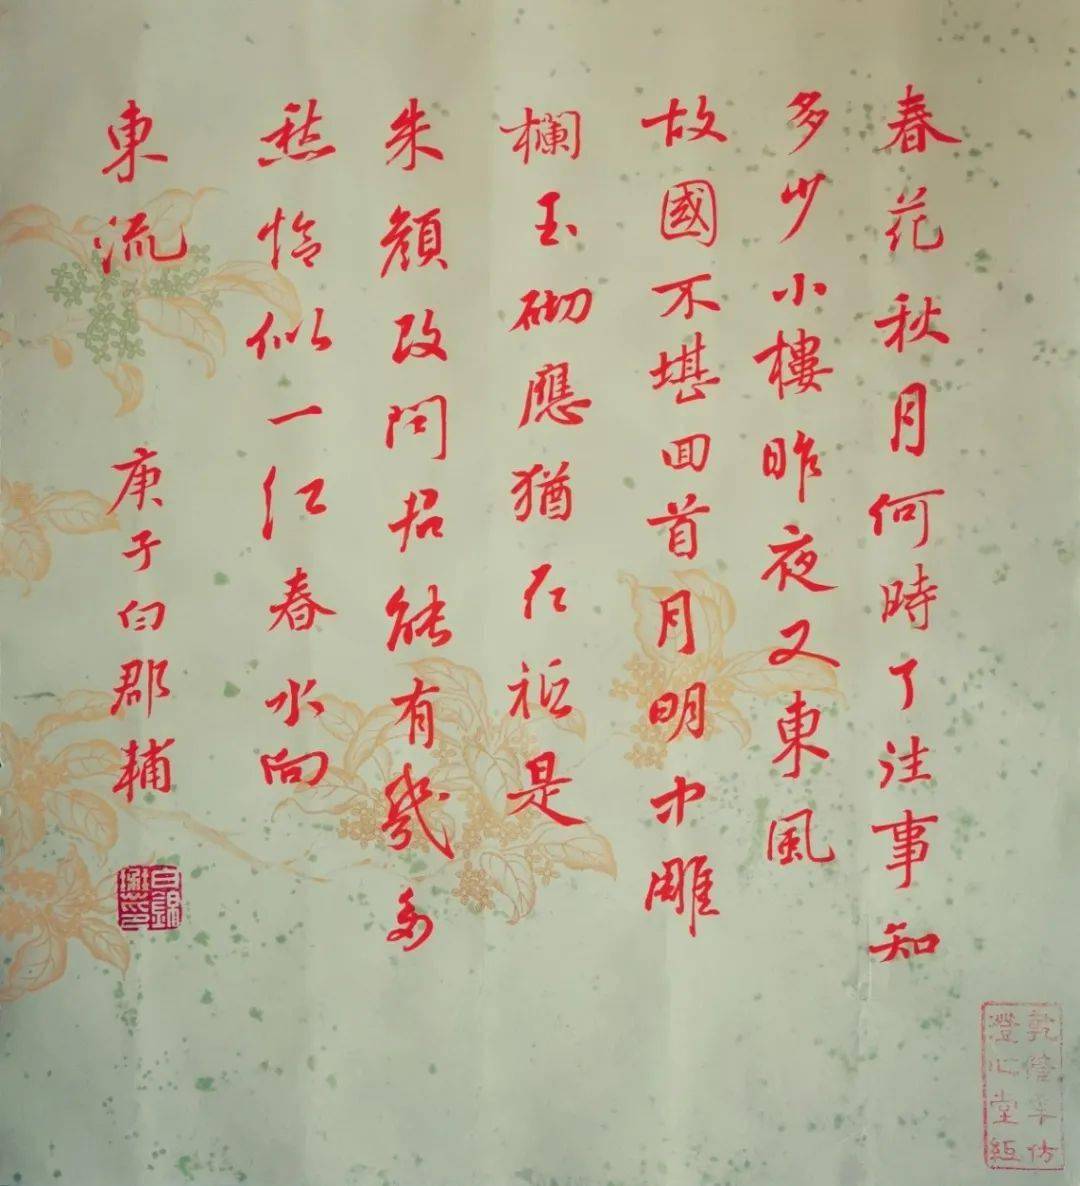 春花秋月何時了往事知
多少小樓昨夜又東風
故國不堪回首月明中雕
欄玉砌應猶在祗是
朱顔改問君能有幾多
愁恰似一江春水向
東流 庚子白郡輔
乾隆年仿
澄心堂紙